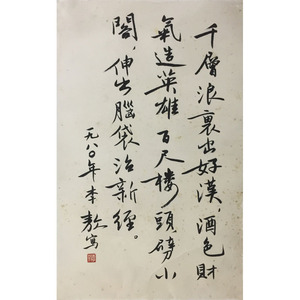 千層浪裏出好漢，酒色財
氣造英雄百尺樓頭劈小
閣，伸出腦袋治新經。
一九八〇年李敖寫